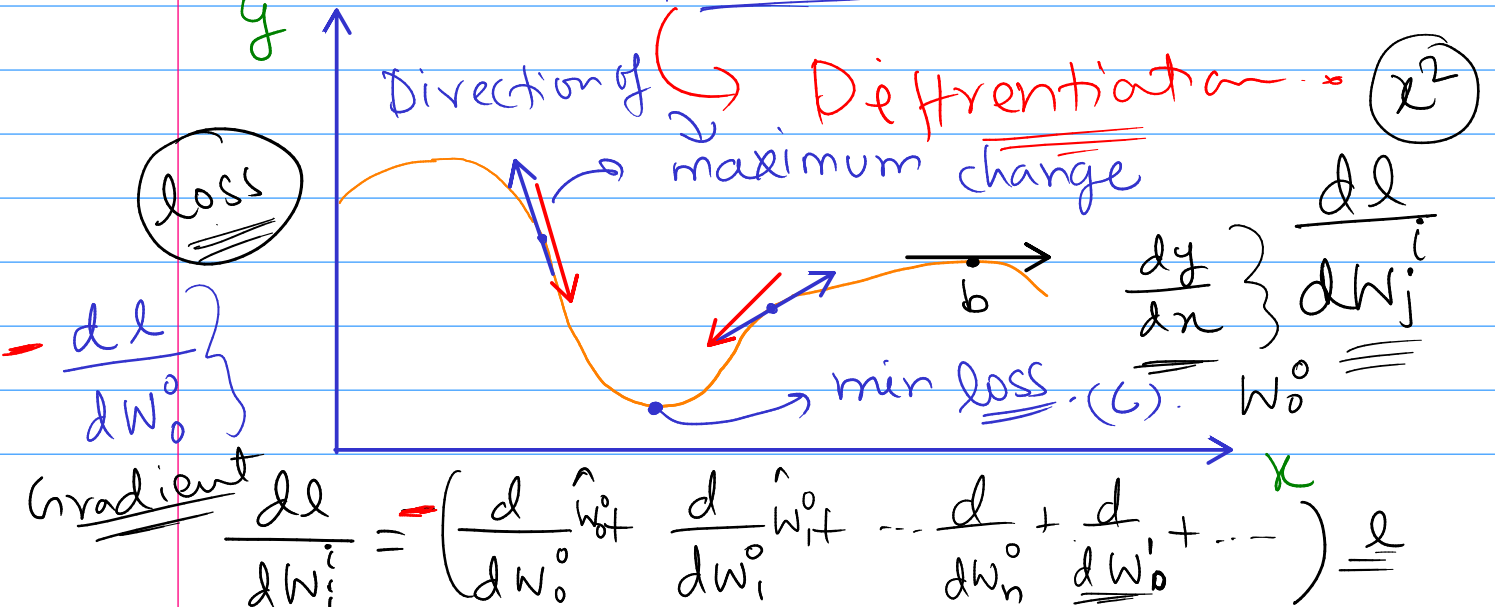 y
Direction of
Diffrentiation
x²
maximum change
loss
dl/dWⱼⁱ
dy/dx
b
- dl/dW₀⁰
min loss. (L).
W₀⁰
x
Gradient
dl/dWⱼⁱ = -(d/dW₀⁰ ŵ₀⁰ + d/dW₁⁰ ŵ₁⁰ + ... d/dWₙ⁰ + d/dW₀¹ + ...) l